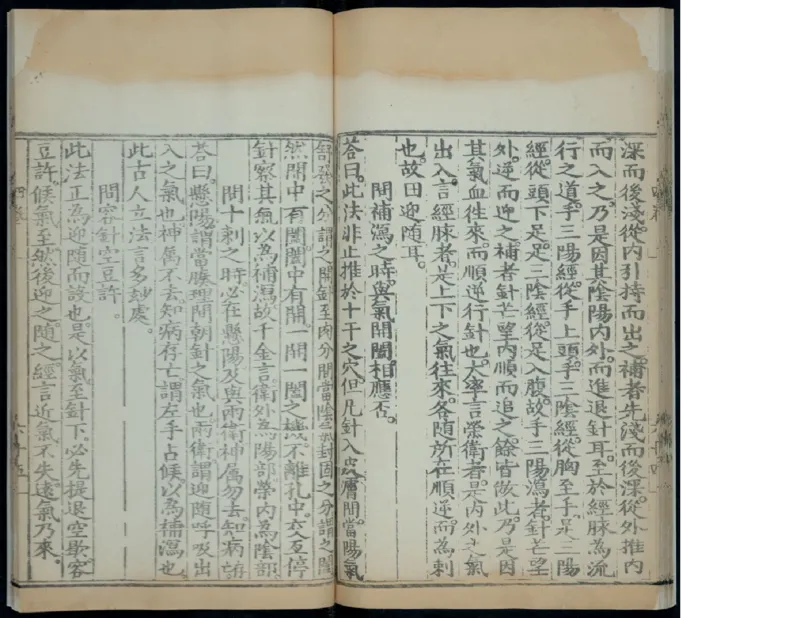 深而後淺。從內引持而出之。補者先淺而後深。從外推內
而入之。乃是因其陰陽內外。而進退針耳。至於經脉為流
行之道。手三陽經。從手上頭。手三陰經。從胸至手。足三陽
經。從頭下足。足三陰經。從足入腹。故手三陽瀉者。針芒望
外。逆而迎之。補者針芒望內。順而追之。餘皆倣此。乃是因
其氣血往來。而順逆行針也。大率言榮衛者。是內外之氣
出入。言經脉者。是上下之氣往來。各隨所在順逆而為刺
也。故曰迎隨耳。
問補瀉之時。與氣開闔相應否。
荅曰。此法非止推於十干之穴。但凡針入皮膚間。當陽氣
舒發之分。謂之開。針至肉分間。當陰氣封固之分。謂之闔。
然開中有闔。闔中有開。一開一闔之機。不離孔中。交互停
針。察其氣以為補瀉。故千金言衛外為陽部。榮內為陰部
問十刺之時。必在懸陽及與兩衛。神属勿去。知病存亡
荅曰。懸陽。謂當腠理間朝針之氣也。兩衛。謂迎隨呼吸出
入之氣也。神属不去。知病存亡。謂左手占候。以為補瀉也。
此古人立法。言多玅處。
問容針空豆許。
此法正為迎隨而設也。是以氣至針下。必先提退空歇。容
豆許。候氣至。然後迎之。隨之。經言近氣不失。遠氣乃來。